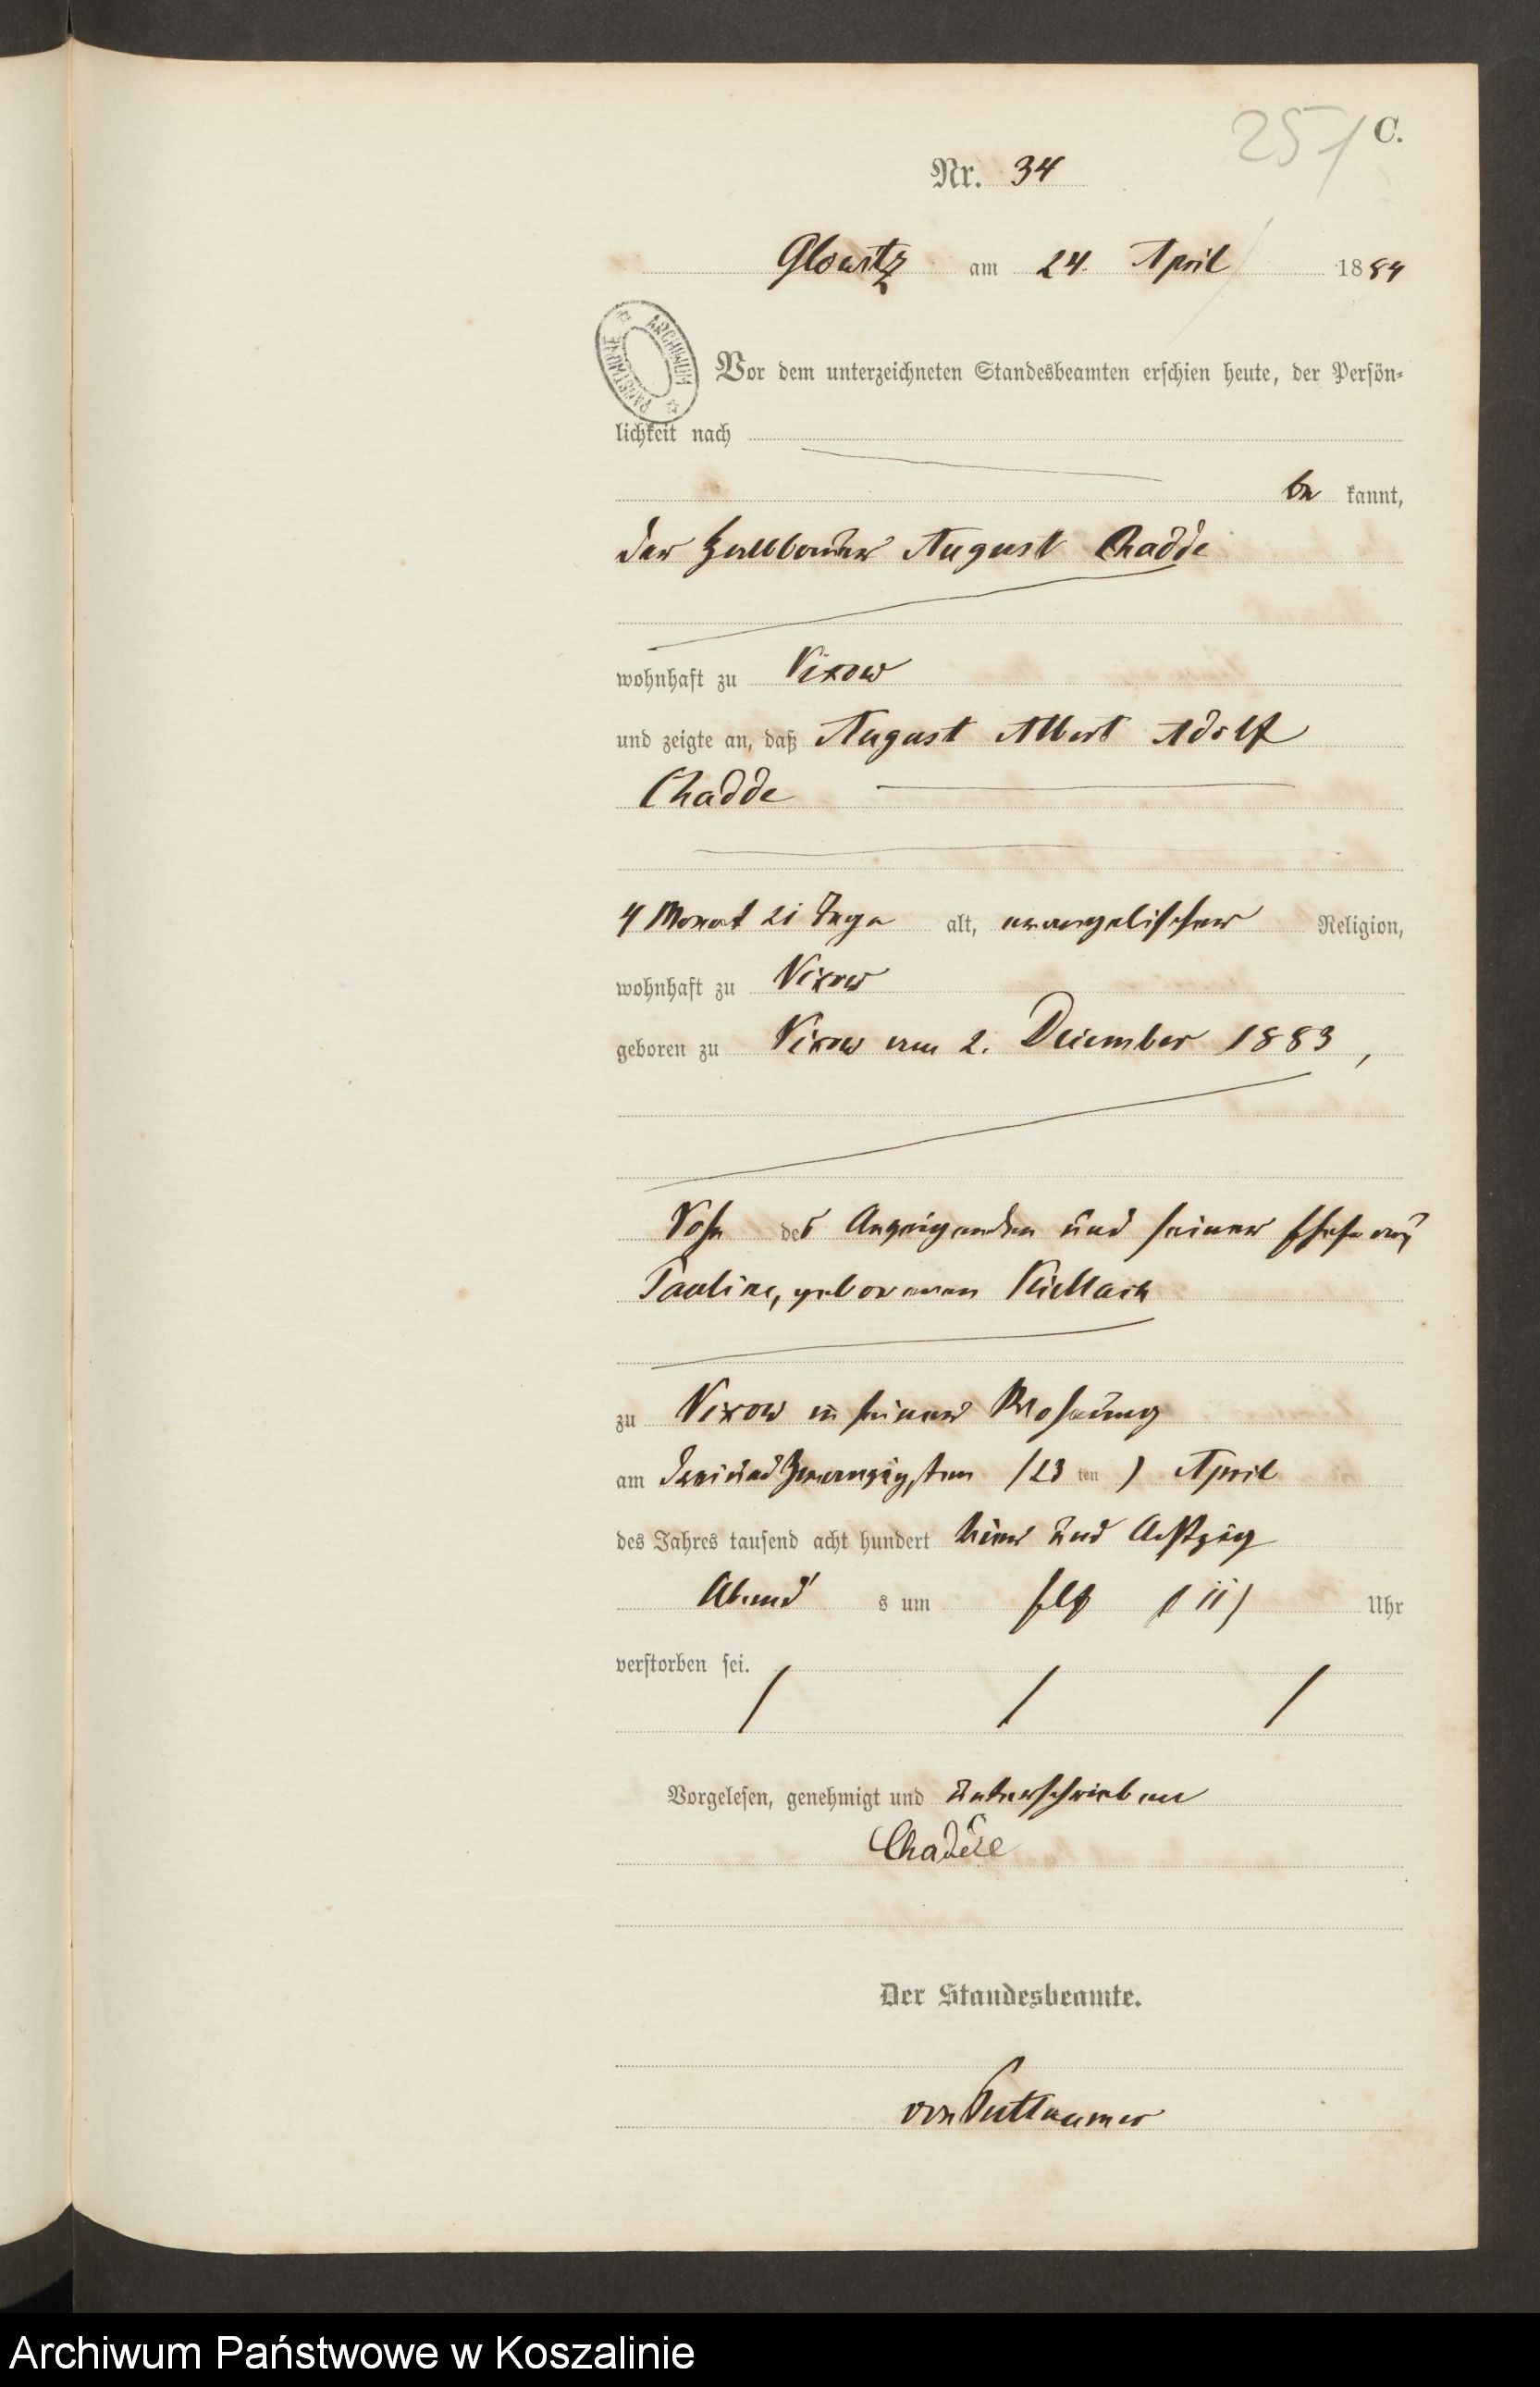 251 C.
Nr. 34
Glowitz am 24. April 1884
ARCHIWUM PAŃSTWOWE
Vor dem unterzeichneten Standesbeamten erschien heute, der Persön-
lichkeit nach
be kannt,
der Halbbauer August Chadde
wohnhaft zu Vixow
und zeigte an, daß August Albert Adolf
Chadde
4 Monat 21 Tage alt, evangelischer Religion,
wohnhaft zu Vixow
geboren zu Vixow am 2. Dezember 1883,
Sohn des Anzeigenden und seiner Ehefrau
Pauline, geborenen
zu Vixow in seiner Wohnung
am dreiundzwanzigsten (23 ten) April
des Jahres tausend acht hundert vier und Achtzig
Abend s um elf (11) Uhr
verstorben sei.
Vorgelesen, genehmigt und unterschrieben
Chadde
Der Standesbeamte.
von Puttkamer
Archiwum Państwowe w Koszalinie